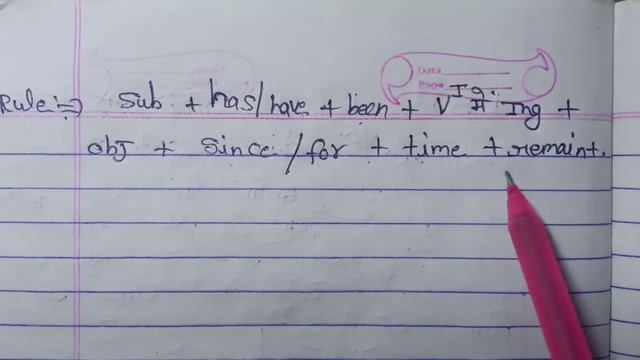 Rule:⇒ Sub + has/have + been + V Ing +
obj + Since/for + time + remaint.